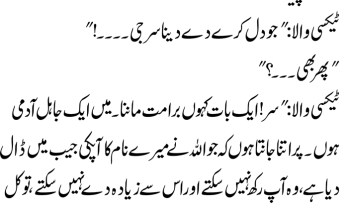 ٹیکسی والا:" جو دل کرے دے دینا سر جی ۔۔۔۔!"
" پھر بھی ۔۔۔؟"
ٹیکسی والا:" سر! ایک بات کہوں برا مت ماننا۔ میں ایک جاہل آدمی
ہوں ۔ پر اتنا جانتا ہوں کہ جو اللہ نے میرے نام کا آپکی جیب میں ڈال
دیا ہے، وہ آپ رکھ نہیں سکتے اور اس سے زیادہ دے نہیں سکتے ، توکل